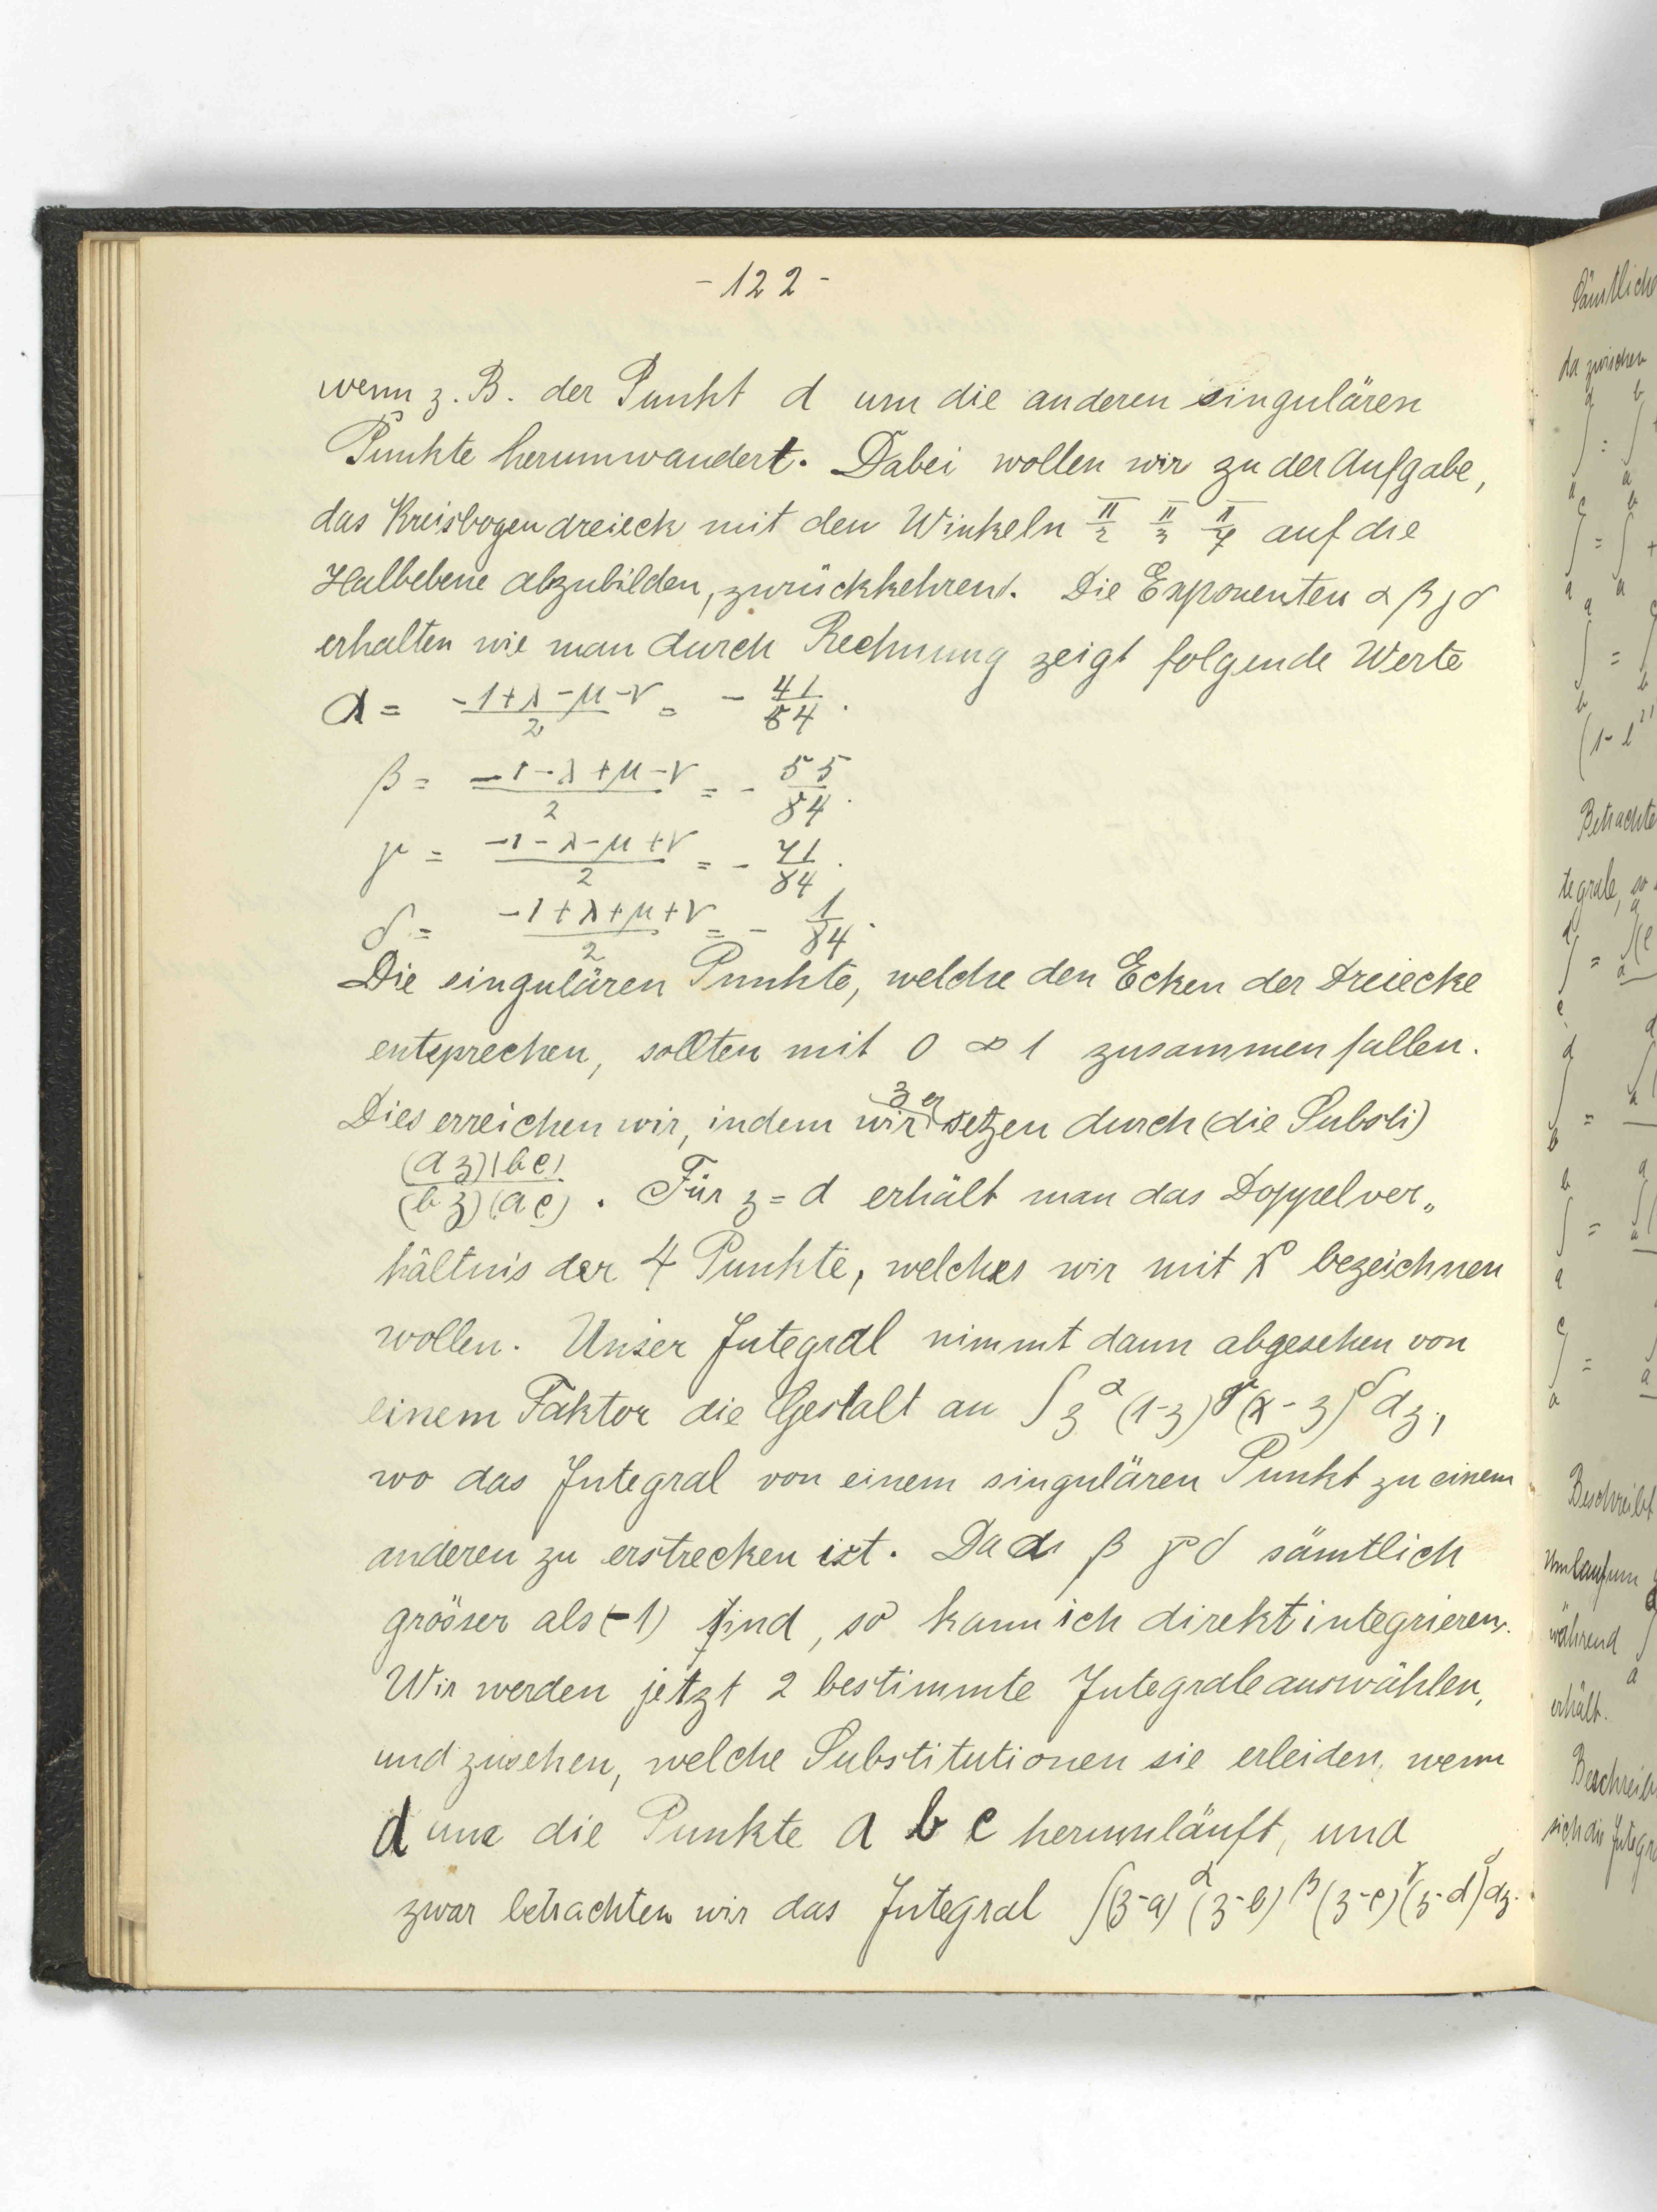 - 122 -
wenn z. B. der Punkt d um die anderen singulären
Punkte herumwandert. Dabei wollen wir zu der Aufgabe,
das Kreisbogendreieck mit den Winkeln π/2 π/3 π/7 auf die
Halbebene abzubilden, zurückkehren. Die Exponenten α β γ δ
erhalten wie man durch Rechnung zeigt folgende Werte
α = (-1+λ-μ-ν)/2 = - 41/84.
β = (-1-λ+μ-ν)/2 = - 55/84.
γ = (-1-λ-μ+ν)/2 = - 71/84.
δ = (-1+λ+μ+ν)/2 = - 1/84.
Die singulären Punkte, welche den Ecken der Dreiecke
entsprechen, sollten mit 0 ∞ 1 zusammenfallen.
Dies erreichen wir, indem wir z ersetzen durch (die Substi)
(a z)(b c)/(b z)(a c) . Für z = d erhält man das Doppelver„
hältnis der 4 Punkte, welches wir mit x bezeichnen
wollen. Unser Integral nimmt dann abgesehen von
einem Faktor die Gestalt an ∫ z^α (1-z)^γ (x-z)^δ dz,
wo das Integral von einem singulären Punkt zu einem
anderen zu erstrecken ist. Da α β γ δ sämtlich
grösser als (-1) sind, so kann ich direkt integrieren.
Wir werden jetzt 2 bestimmte Integrale auswählen,
und zusehen, welche Substitutionen sie erleiden, wenn
d um die Punkte a b c herumläuft, und
zwar betrachten wir das Integral ∫(z-a)^α (z-b)^β (z-c)^γ (z-d)^δ dz.
Sämtliche
da zwischen
Betrachte
tegrale, so
Beschreibt
Umlauf um
während
erhält.
sich die Integra